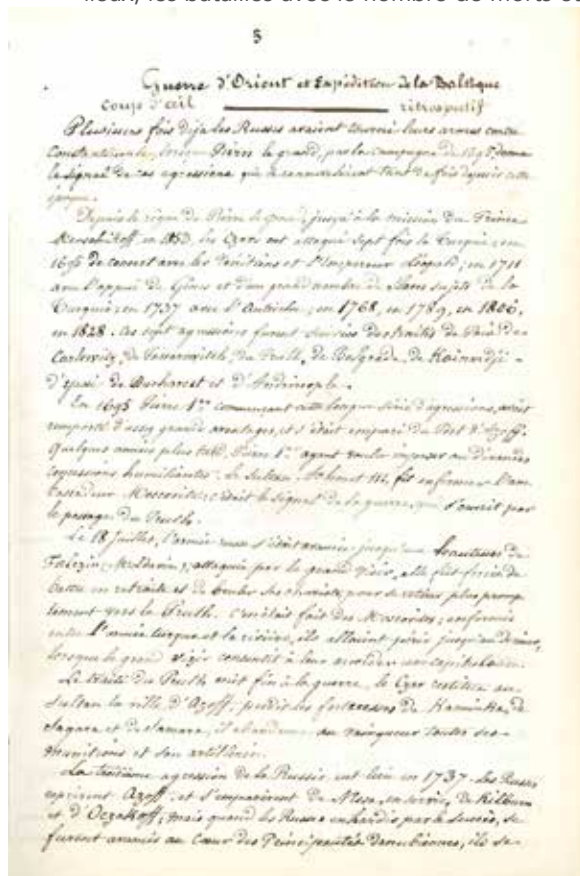 5
Guerre d'Orient et Expédition de la Baltique
coup d'œil rétrospectif
Plusieurs fois déjà les Russes avaient tourné leurs armes contre
Constantinople, lorsque Pierre le grand, par la campagne de 1695, donna
le signal de ces agressions qui se renouvelèrent tant de fois depuis cette
époque.
Depuis le règne de Pierre le grand, jusqu'à la mission du Prince
Menschikoff en 1853, les Czars ont attaqué sept fois la Turquie: en
1695 de concert avec les Vénitiens et l'Empereur Léopold; en 1711
avec l'appui de Grecs et d'un grand nombre de Slaves sujets de la
Turquie; en 1737 avec l'Autriche; en 1768, en 1789, en 1806,
en 1828. Ces sept agressions furent suivies des traités de Paix de
Carlowitz, de du Pruth, de Belgrade, de Kaïnardji -
d'Yassi de Bucharest et d'Andrinople.
En 1695 Pierre 1er commençant cette longue série d'agressions, avait
remporté d'assez grands avantages, et s'était emparé du Port d'Azoff.
Quelques années plus tard, Pierre 1er ayant voulu imposer au divan des
concessions humiliantes, le Sultan Achmet III, fit enfermer l'am-
bassadeur Moscovite; c'était le signal de la guerre, qui s'ouvrit par
le passage du Pruth.
Le 18 Juillet, l'armée russe s'était avancée jusqu'aux hauteurs de
Falezin, Moldavie; attaquée par le grand Vizir, elle fut forcée de
battre en retraite et de brûler ses chariots pour se retirer plus promp-
tement vers le Pruth. C'en était fait des Moscovites; enfermés
entre l'armée turque et la rivière, ils allaient périr jusqu'au dernier,
lorsque le grand Vizir consentit à leur accorder une capitulation.
Le traité du Pruth mit fin à la guerre, le Czar restitua au
Sultan la ville d'Azoff, perdit les forteresses de Kaminska, de
Sagara et de Samara, il abandonna au vainqueur toutes ses
munitions et son artillerie.
La troisième agression de la Russie eut lieu en 1737. Les Russes
reprirent Azoff, et s'emparèrent de de Kilburn
et d'Oczakoff; mais quand les Russes enhardis par le succès, se
furent avancés au cœur des Principautés danubiennes, ils se-